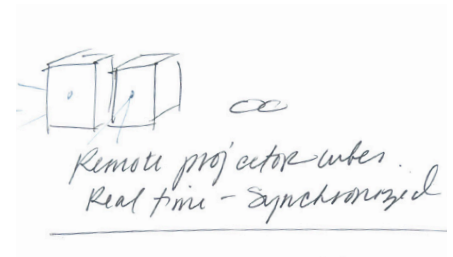 Remote projector cubes.
Real time - Synchronized